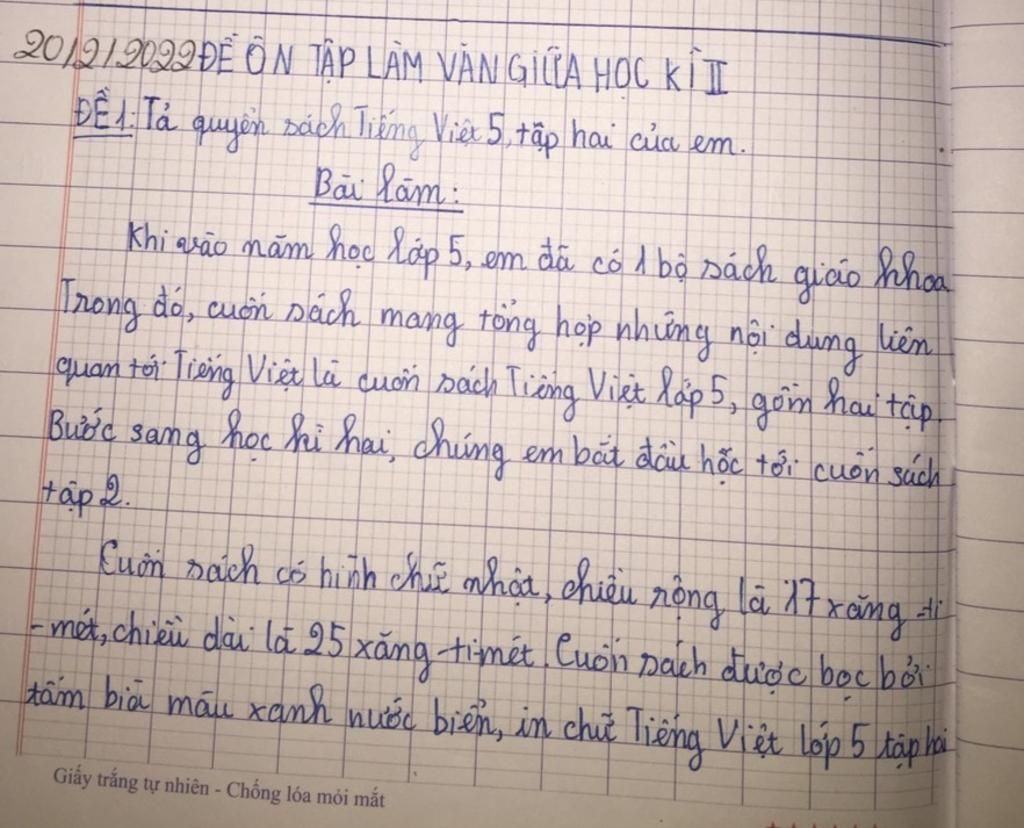 20/2/2022 ĐỀ ÔN TẬP LÀM VĂN GIỮA HỌC KÌ II
ĐỀ 1: Tả quyển sách Tiếng Việt 5, tập hai của em.
Bài làm:
Khi vào năm học lớp 5, em đã có 1 bộ sách giáo khoa
Trong đó, cuốn sách mang tổng hợp những nội dung liên
quan tới Tiếng Việt là cuốn sách Tiếng Việt lớp 5, gồm hai tập.
Bước sang học kì hai, chúng em bắt đầu học tới cuốn sách
tập 2.
Cuốn sách có hình chữ nhật, chiều rộng là 17 xăng -ti
-mét, chiều dài là 25 xăng-ti-mét. Cuốn sách được bọc bởi
tấm bìa màu xanh nước biển, in chữ Tiếng Việt lớp 5 tập hai
Giấy trắng tự nhiên - Chống lóa mỏi mắt